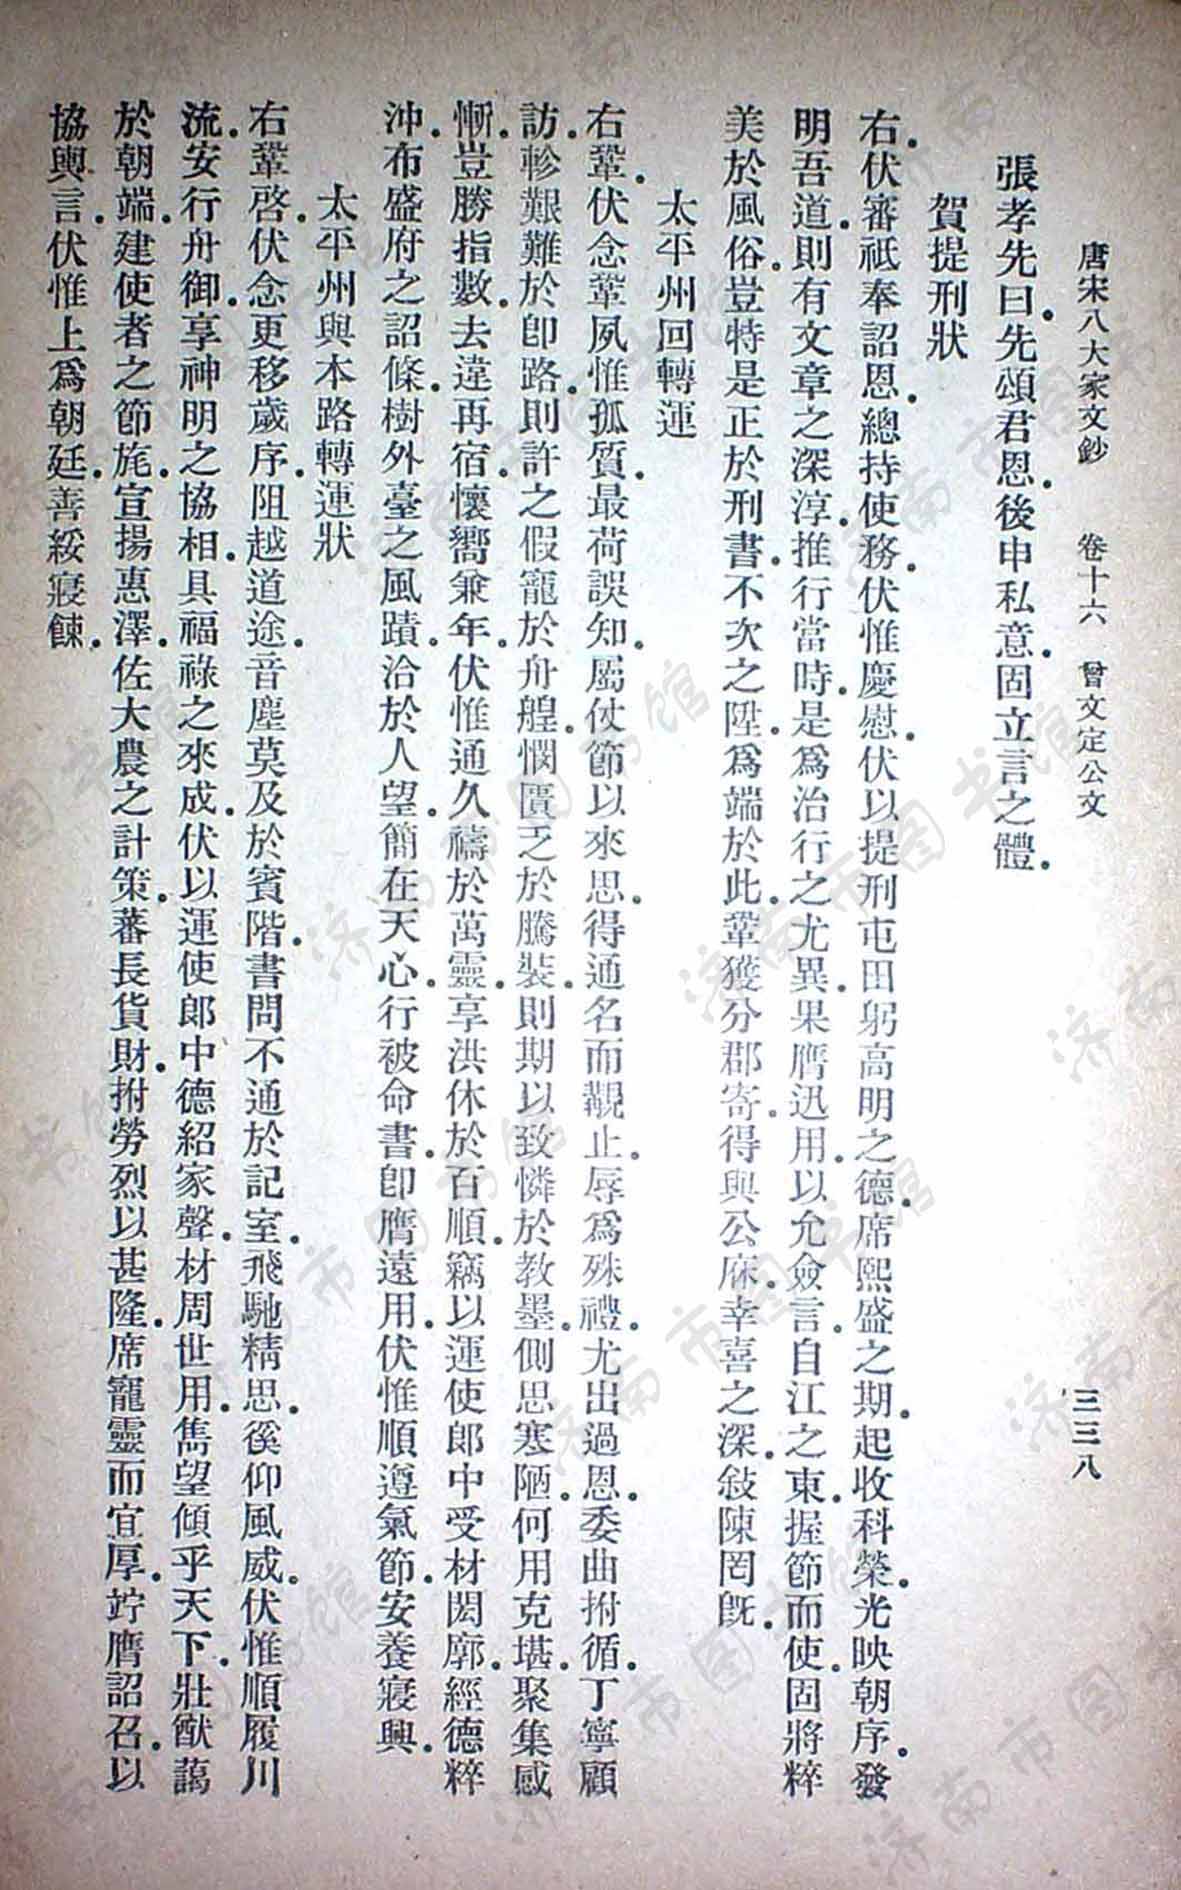 唐宋八大家文鈔　卷十六　曾文定公文　三三八
張孝先曰．先頌君恩．後申私意．固立言之體．
賀提刑狀
右．伏審祗奉詔恩．總持使務．伏惟慶慰．伏以提刑屯田躬高明之德．席熙盛之期．起收科榮．光映朝序．發
明吾道．則有文章之深淳．推行當時．是爲治行之尤異．果膺迅用．以允僉言．自江之東．握節而使．固將粹
美於風俗．豈特是正於刑書．不次之陞．爲端於此．鞏獲分郡寄．得與公庥．幸喜之深．敍陳罔旣．
太平州回轉運
右鞏．伏念鞏夙惟孤質．最荷誤知．屬仗節以來思．得通名而覯止．辱爲殊禮．尤出過恩．委曲拊循．丁寧顧
訪．軫艱難於卽路．則許之假寵於舟艎．憫匱乏於騰裝．則期以致憐於教墨．側思寒陋．何用克堪．聚集感
慚．豈勝指數．去違再宿．懷嚮兼年．伏惟通久禱於萬靈．享洪休於百順．竊以運使郎中受材閎廓．經德粹
沖．布盛府之詔條．樹外臺之風蹟．洽於人望．簡在天心．行被命書．卽膺遠用．伏惟順遵氣節．安養寢興．
太平州與本路轉運狀
右鞏啓．伏念更移歲序．阻越道途．音塵莫及於賓階．書問不通於記室．飛馳精思．徯仰風威．伏惟順履川
流．安行舟御．享神明之協相．具福祿之來成．伏以運使郎中德紹家聲．材周世用．雋望傾乎天下．壯猷藹
於朝端．建使者之節旄．宣揚惠澤．佐大農之計策．蕃長貨財．拊勞烈以甚隆．席寵靈而宜厚．竚膺詔召．以
協輿言．伏惟上爲朝廷．善綏寢餗．